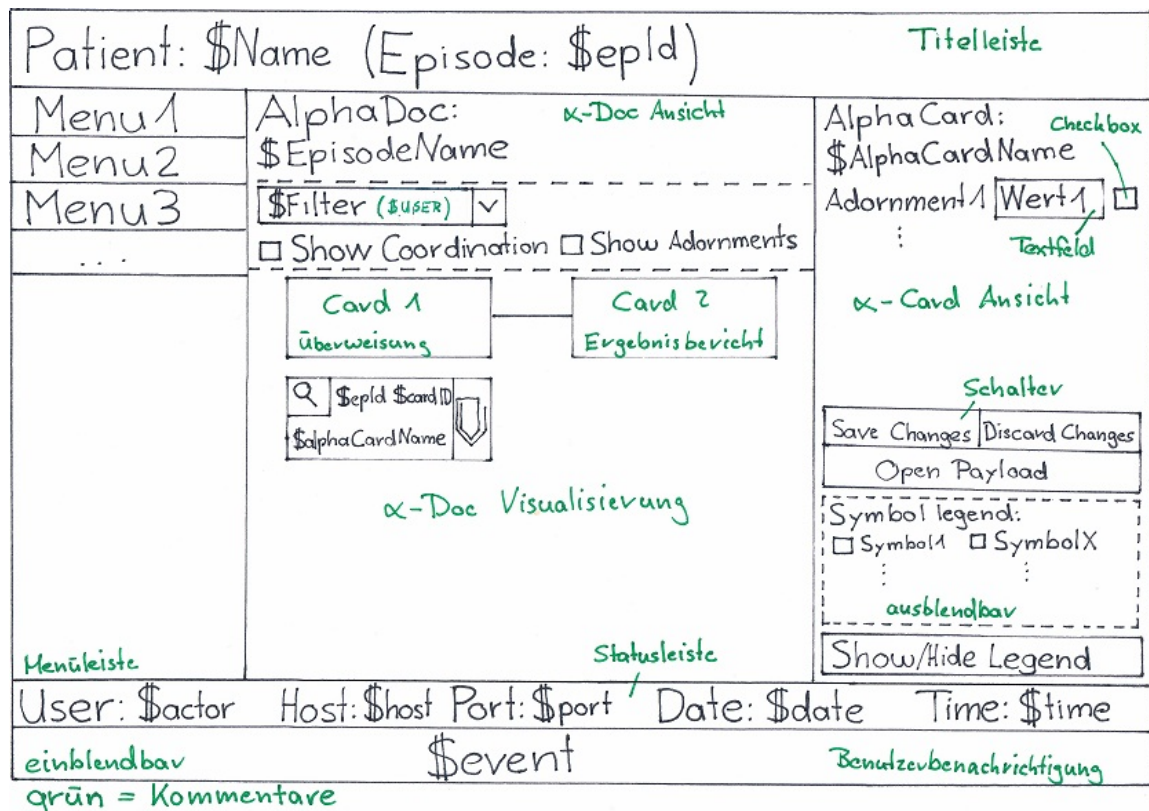 Patient: $Name (Episode: $epId)
Titelleiste
Menu1
Menu2
Menu3
...
Menüleiste
AlphaDoc:
α-Doc Ansicht
$EpisodeName
$Filter ($USER)
Show Coordination
Show Adornments
Card 1
Überweisung
Card 2
Ergebnisbericht
$epId $cardID
$alphaCardName
α-Doc Visualisierung
AlphaCard:
Checkbox
$AlphaCardName
Adornment1 Wert1
Textfeld
α-Card Ansicht
Schalter
Save Changes
Discard Changes
Open Payload
Symbol legend:
Symbol1
SymbolX
ausblendbar
Show/Hide Legend
Statusleiste
User: $actor Host: $host Port: $port Date: $date Time: $time
einblendbar
$event
Benutzerbenachrichtigung
grün = Kommentare